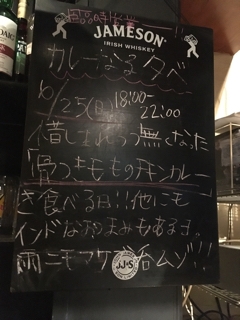 JAMESON
IRISH WHISKEY
カレーなる夕べ
6/25(日) 18:00~
22:00
惜しまれつつ無くなった
「骨つきもものチキンカレー」
を食べる日!!他にも
インドなおつまみもあるよ。
雨ニモマケズ
JJ&S